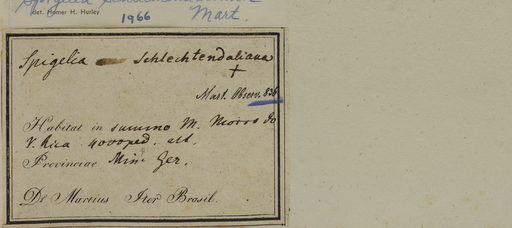 Spigelia Schlechtendaliana
det. Homer H. Hurley
1966 Mart.
Spigelia Schlechtendaliana
+
Mart. Observ. 838
Habitat in summo M. Morro do
V. Rica 4000 ped. alt.
Provinciae Min. Ger.
Dr Martius Iter Brasil.